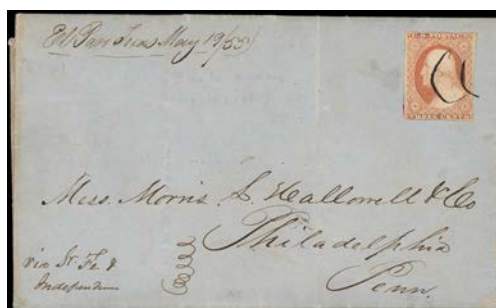 El Paso Texas May 19/55
U.S. POSTAGE
THREE CENTS
Mess. Morris L. Hallowell & Co
Philadelphia
Penn.
via St. Fe &
Independence